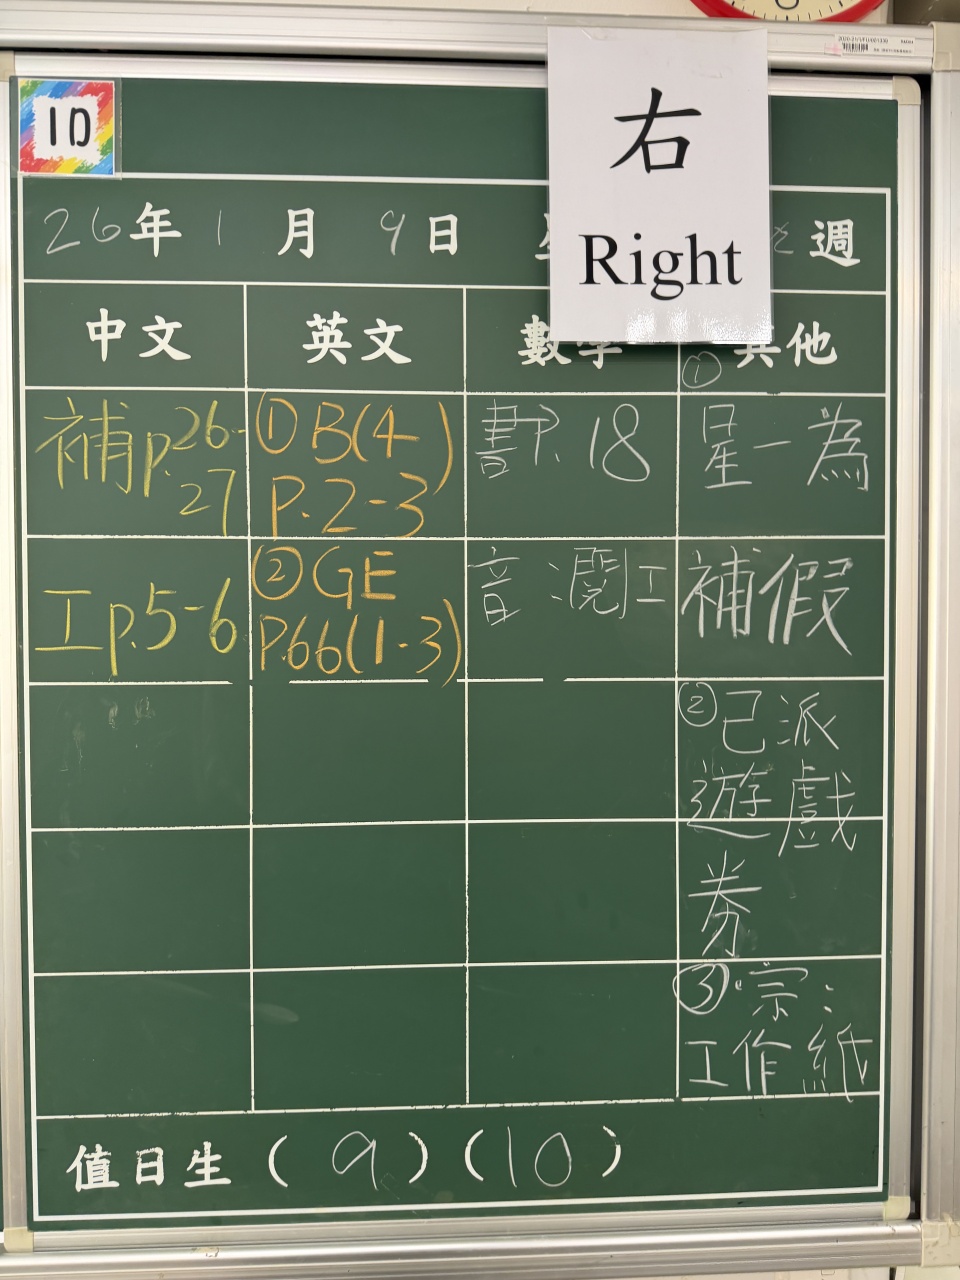 1D
右
Right
26年1月9日 週
中文 英文 數學 其他
補p.26-27
工p.5-6
①B(4)
P.2-3
②GE
P.66(1-3)
書P.18
音:閱工
①
星一為
補假
②已派
遊戲
券
③宗:
工作紙
值日生(9)(10)